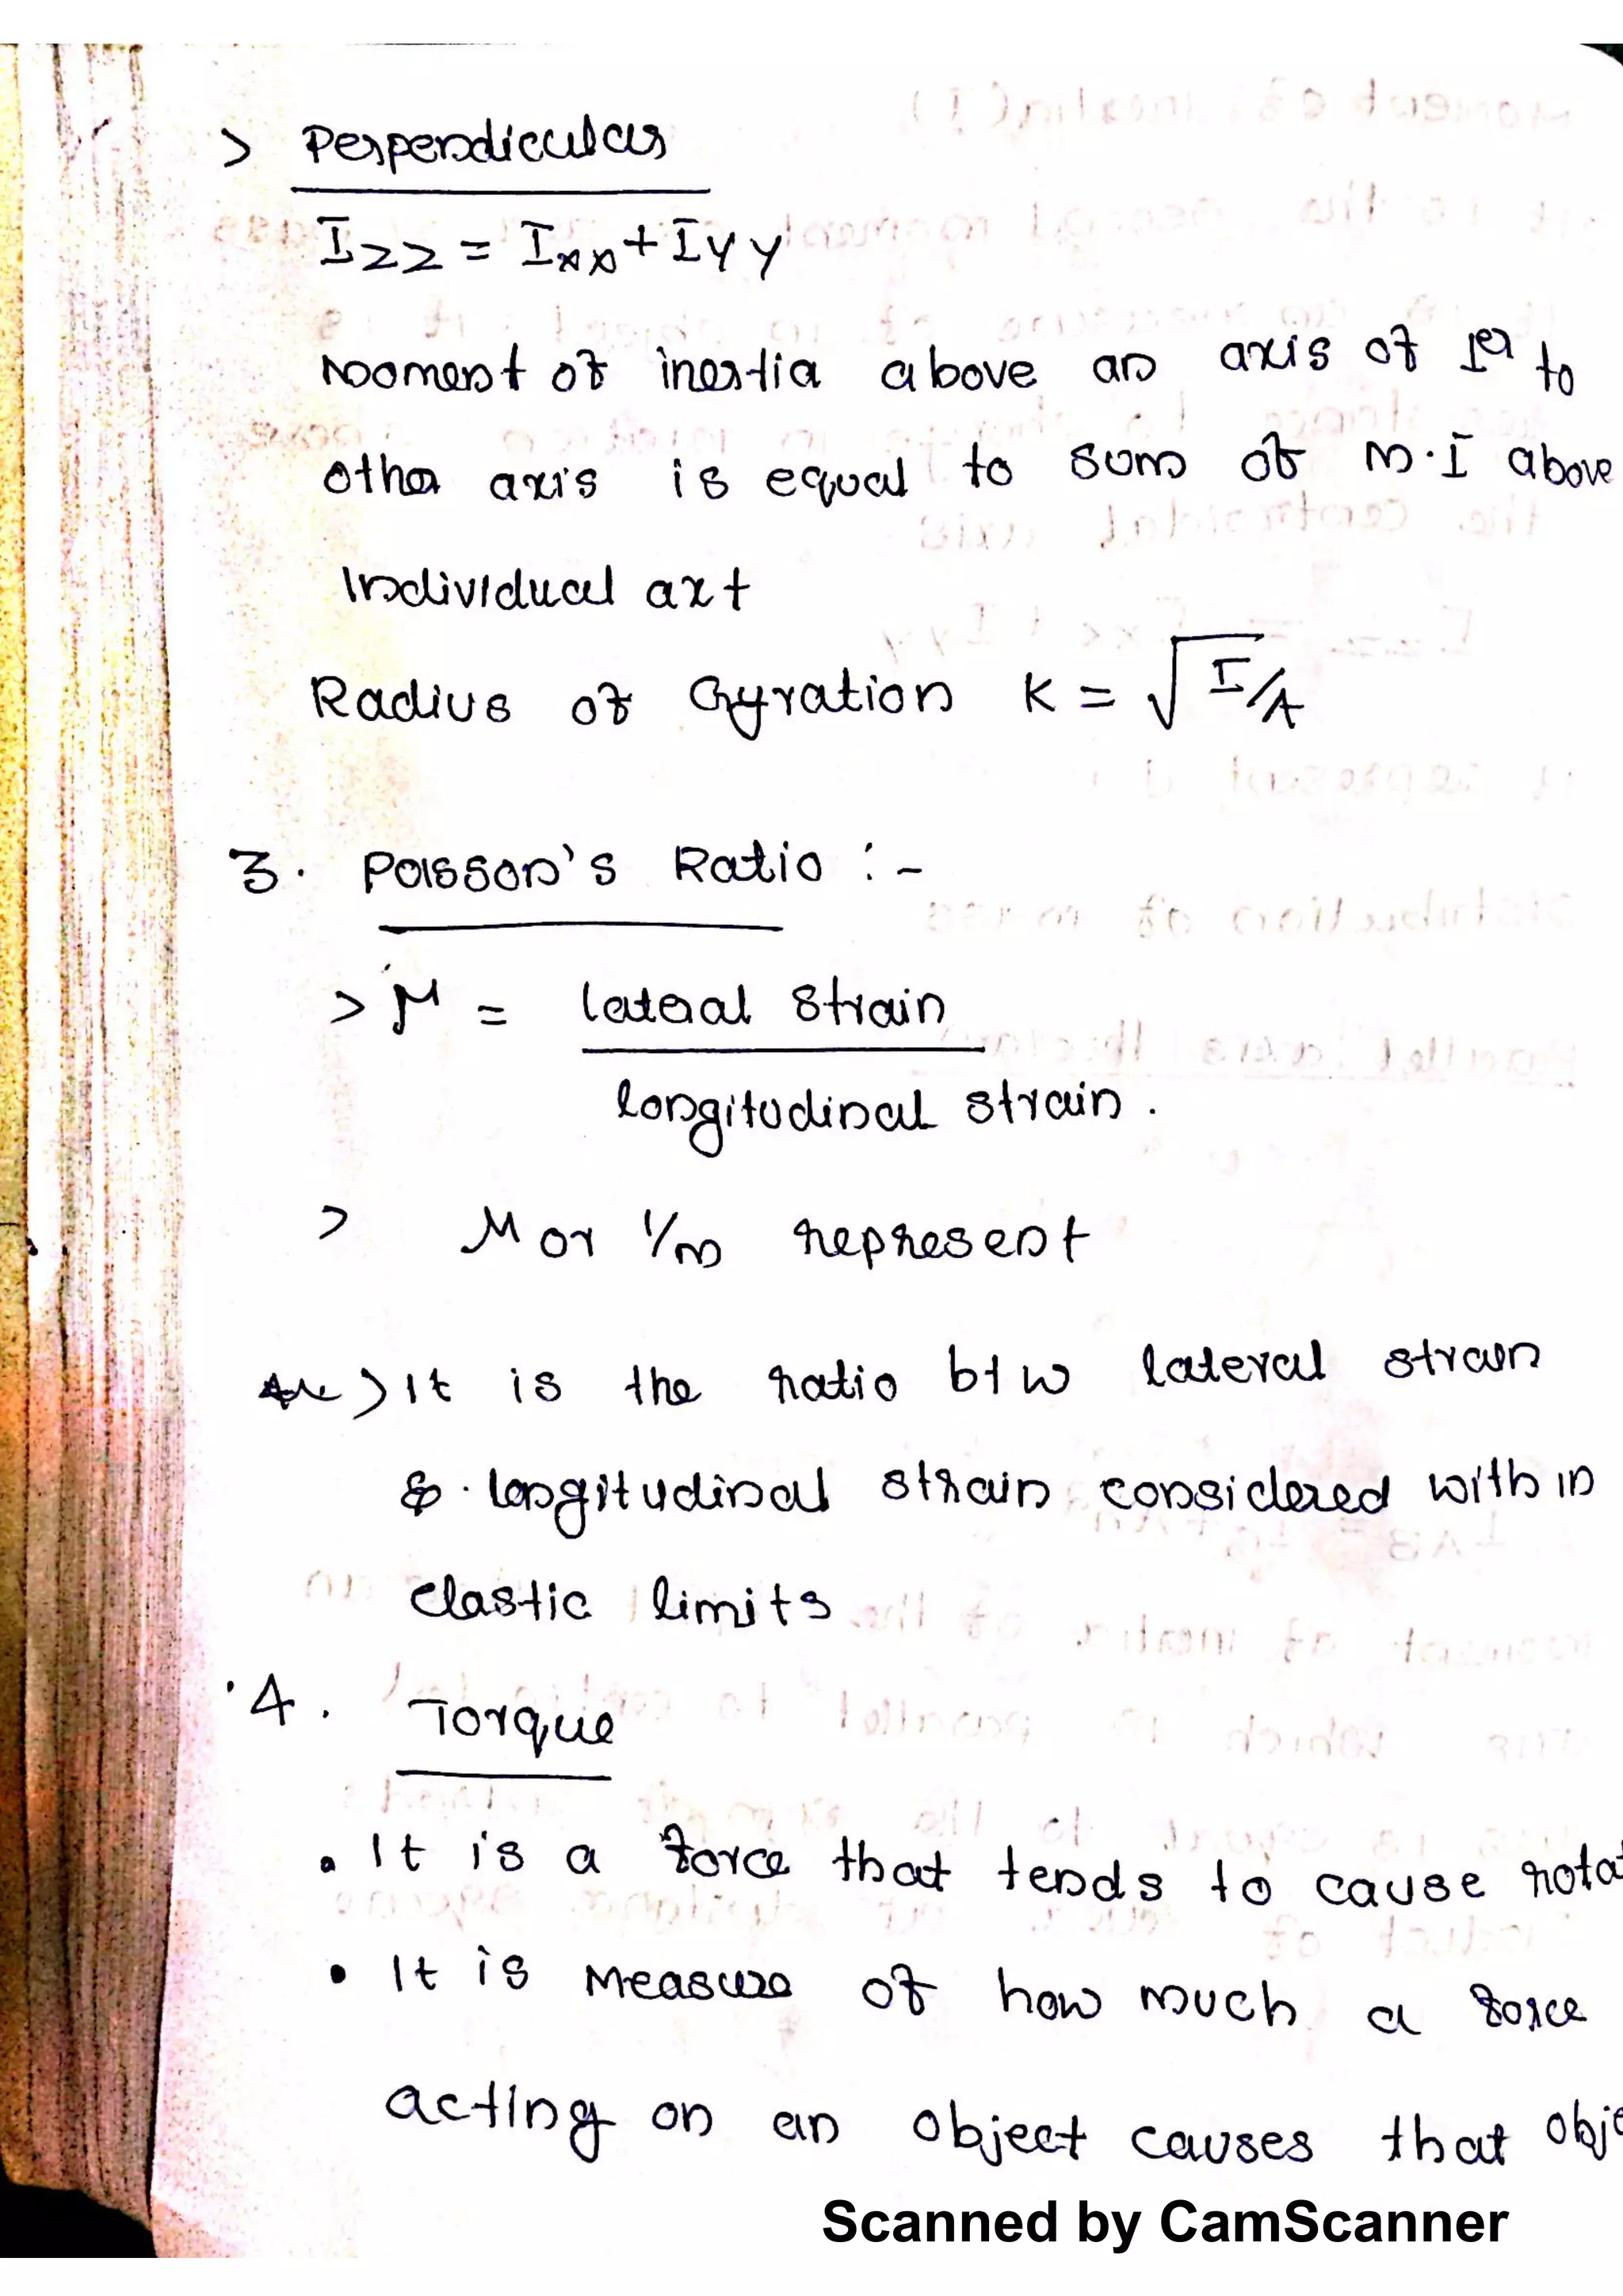 > Perpendicular
Izz = Ixx + Iyy
Moment of inertia above an axis of ⊥er to
other axis is equal to sum of M.I above
Individual axt
Radius of Gyration K = √I/A
3. Poisson's Ratio :-
> μ = lateral strain
longitudinal strain.
> μ or 1/m represent
> It is the ratio btw lateral strain
& longitudinal strain considered within
elastic limits
4. Torque
• It is a force that tends to cause rotat
• It is Measure of how much a force
acting on an object causes that obje
Scanned by CamScanner